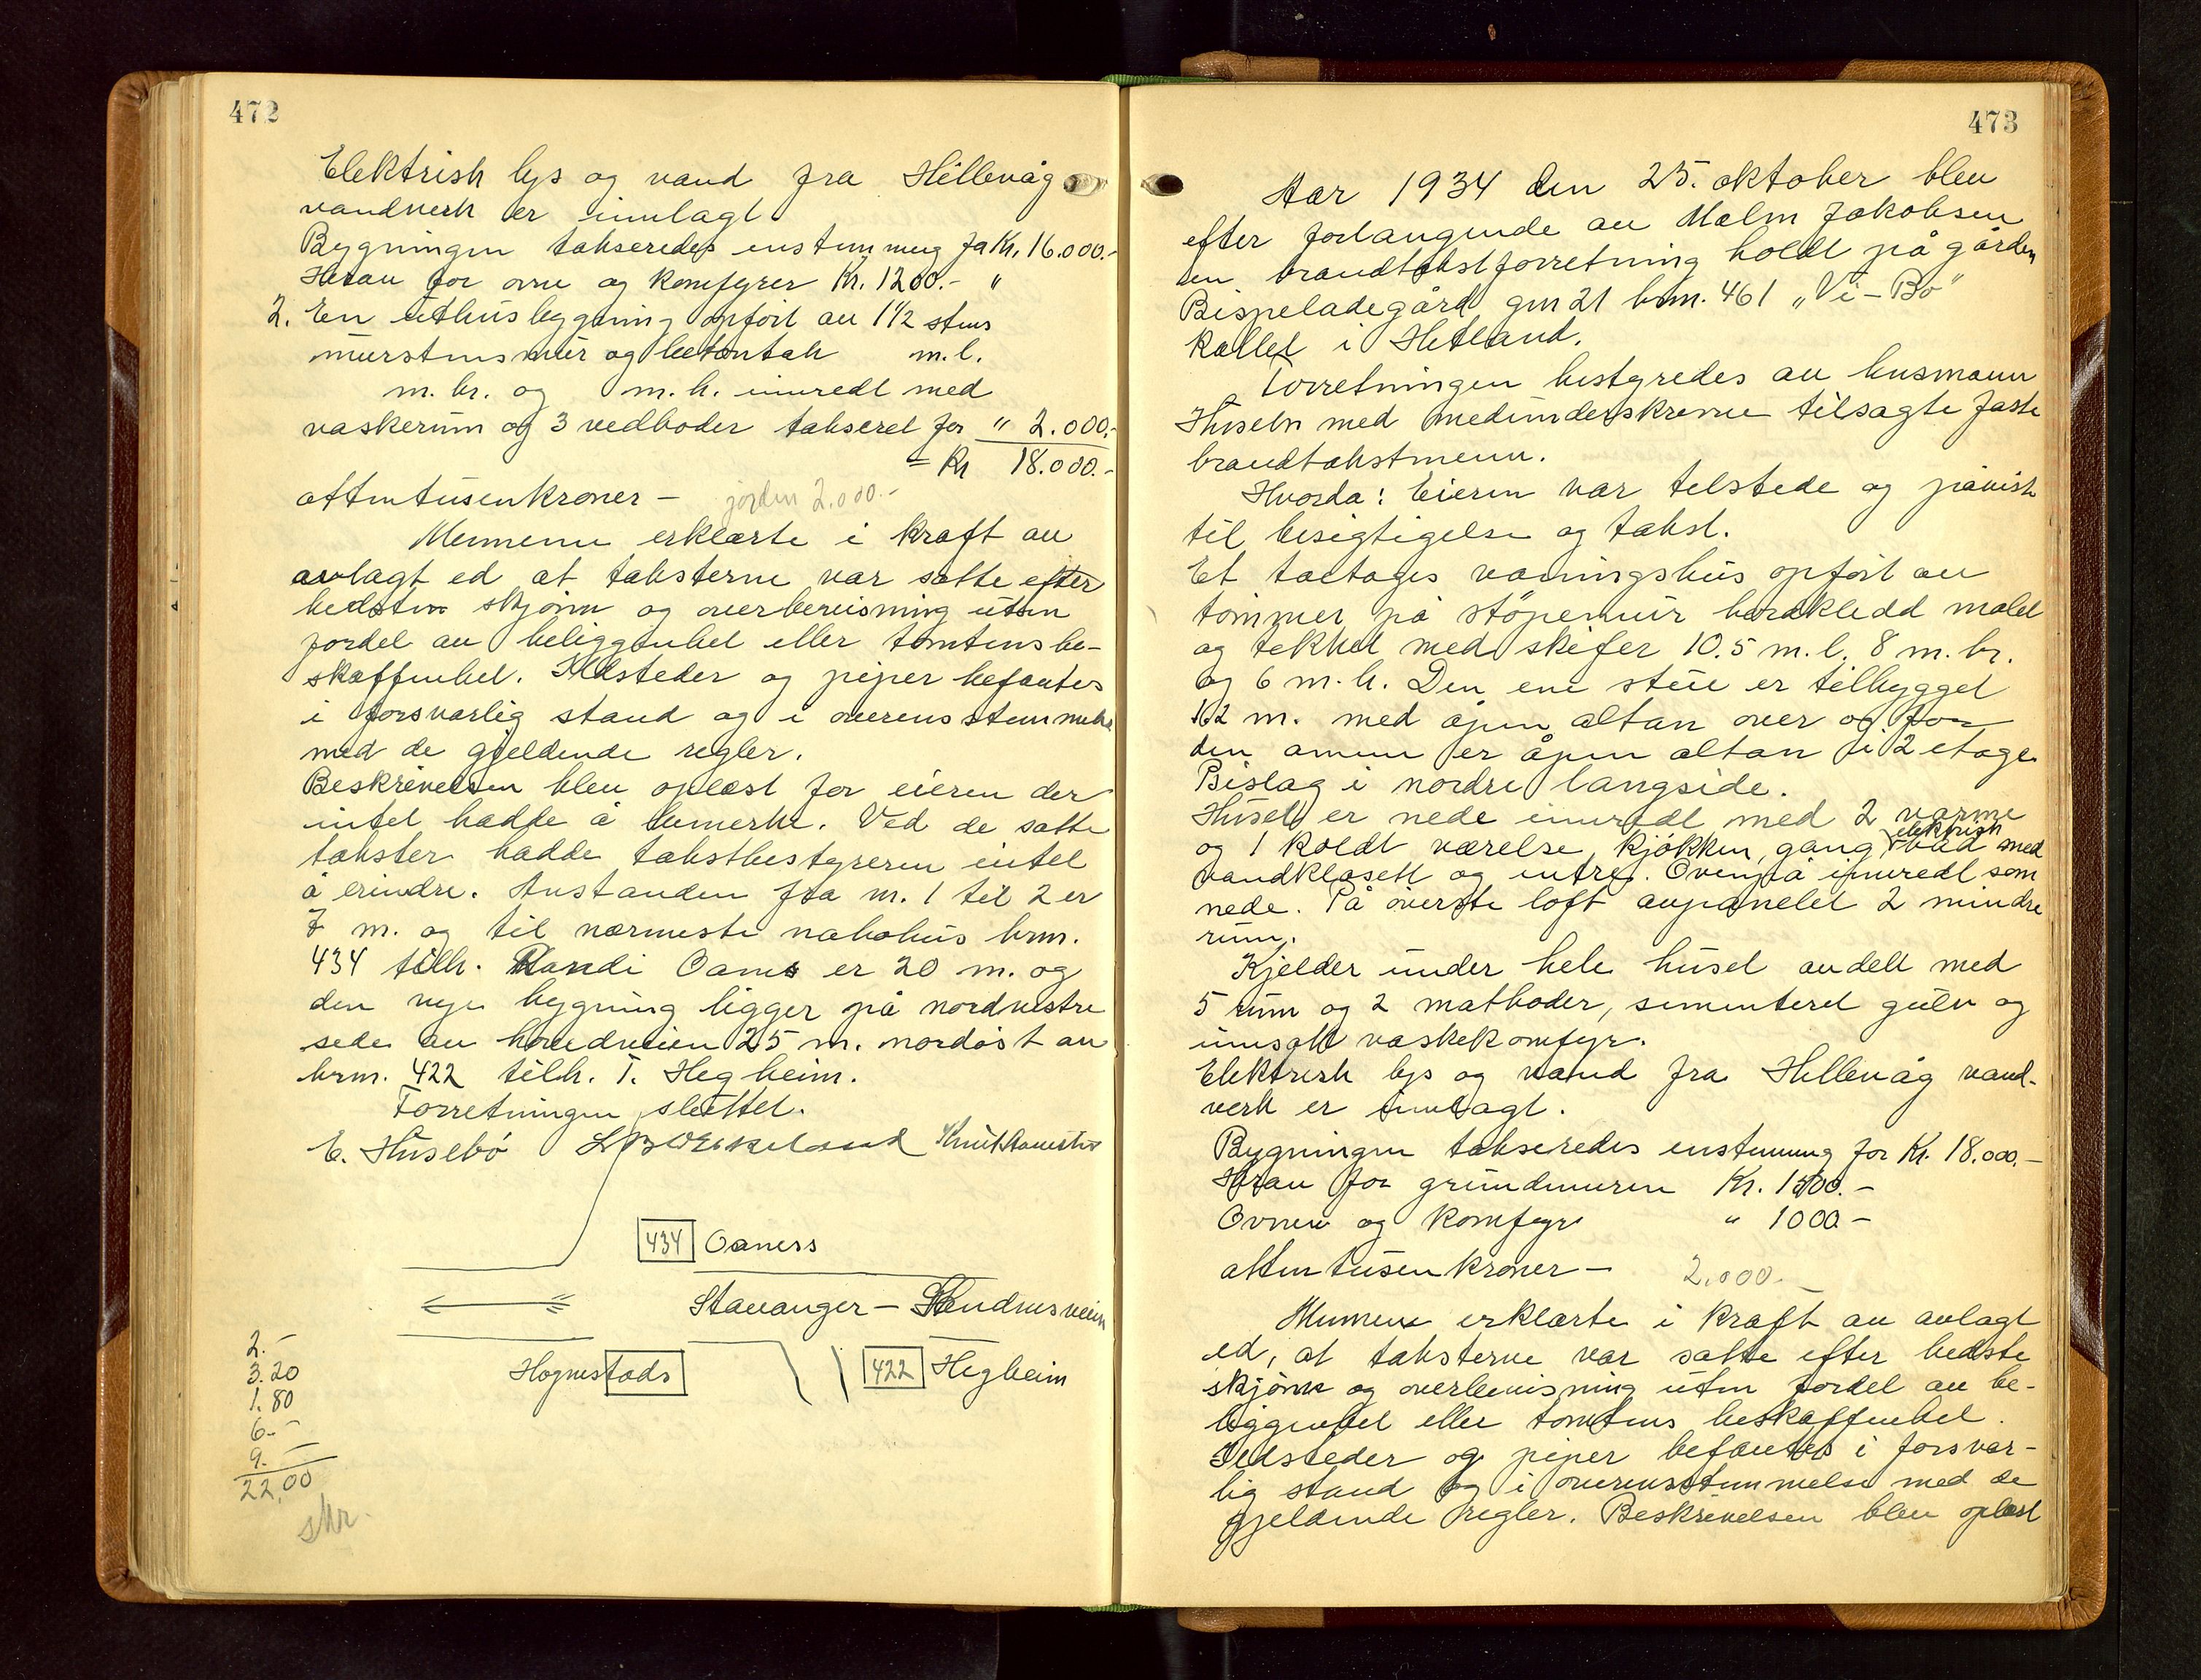 472
Elektrisk lys og vand fra Hillevåg
vandverk er innlagt
Bygningen takseredes enstemmig fa Kr. 16.000.-
Herav for ovne og komfyrer Kr. 1200.- "
2. En uthusbygning opført av 1 1/2 stens
murstensmur og betontak m.l.
m.br. og m.h. innredt med
vaskerum og 3 vedboder takseret for " 2.000.-
= Kr 18.000.-
attentusenkroner - jorden 2.000.-
Mennene erklærte i kraft av
avlagt ed at taksterne var satte efter
bedste skjønn og overbevisning uten
fordel av beliggenhet eller tomtens be-
skaffenhet. Ildsteder og piper befantes
i forsvarlig stand og i overensstemmelse
med de gjeldende regler.
Beskrivelsen blev oplæst for eieren der
intet hadde å bemerke. Ved de satte
takster hadde takstbestyreren intet
å erindre. Avstanden fra m. 1 til 2 er
7 m. og til nærmeste nabohus brm.
434 tilh. Randi Oanes er 20 m. og
den nye bygning ligger på nordvestre
side av hovedveien 25 m. nordøst av
brm. 422 tilh. T. Hegheim.
Forretningen sluttet.
E. Husebø L B Weskeland Knut
434 Oaness
Stavanger - Sandnesveien
Hognestads 422 Hegheim
2.-
3.20
1.80
6.-
9.-
22,00
skr.
473
Aar 1934 den 25. oktober blev
efter forlangende av Malm Jakobsen
en brandtakstforretning holdt på gården
Bispeladegård gnr 21 brm. 461 "Vi-Bo"
kallet i Hetland.
Forretningen bestyredes av lensmann
Husebø med medunderskrevne tilsagte faste
brandtakstmenn.
Hvorda: Eieren var tilstede og påviste
til besigtigelse og takst.
Et toetages våningshus opført av
tømmer på støpemur bordkledd malet
og tekket med skifer 10.5 m.l. 8 m.br.
og 6 m.h. Den ene stue er tilbygget
1.2 m. med åpen altan over og for
den annen er åpen altan i 2 etage
Bislag i nordre langside.
Huset er nede innredt med 2 varme
og 1 koldt værelse, kjøkken, gang, elektrisk bad med
vandklosett og entre. Ovenpå innredt som
nede. På øverste loft avpanelet 2 mindre
rum.
Kjelder under hele huset avdelt med
5 rum og 2 matboder, sementeret gulv og
innsatt vaskekomfyr.
Elektrisk lys og vand fra Hillevåg vand-
verk er innlagt.
Bygningen takseredes enstemmig for Kr. 18.000.-
Herav for grundmuren Kr. 1500.-
Ovner og komfyr " 1000.-
attentusenkroner - 2.000.-
Mennene erklærte i kraft av avlagt
ed, at taksterne var satte efter bedste
skjønn og overbevisning uten fordel av be-
liggenhet eller tomtens beskaffenhet.
Ildsteder og piper befantes i forsvar-
lig stand og i overensstemmelse med de
gjeldende regler. Beskrivelsen blev oplæst